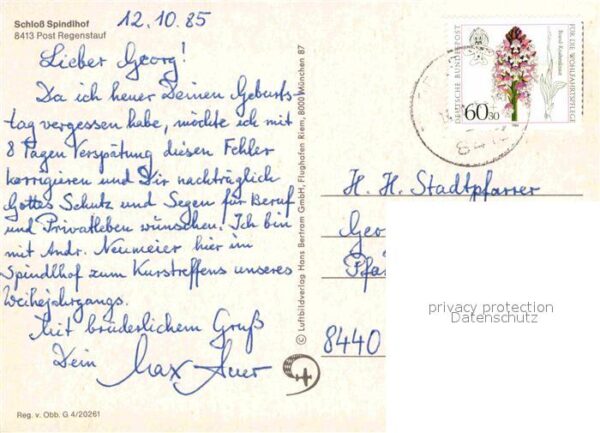 Schloß Spindlhof
8413 Post Regenstauf
12.10.85
Lieber Georg!
Da ich heuer Deinen Geburts-
tag vergessen habe, möchte ich mit
8 Tagen Verspätung diesen Fehler
korrigieren und Dir nachträglich
Gottes Schutz und Segen für Beruf
und Privatleben wünschen. Ich bin
mit Andr. Neumeier hier im
Spindlhof zum Kurstreffens unseres
Weihejahrgangs.
Mit brüderlichem Gruß
Dein Max Auer
Reg. v. Obb. G 4/20261
© Luftbildverlag Hans Bertram GmbH, Flughafen Riem, 8000 München 87
DEUTSCHE BUNDESPOST
60+30
FÜR DIE WOHLFAHRTSPFLEGE
Brand-Knabenkraut
841
H. H. Stadtpfarrer
Geo
Pfa
8440
privacy protection
Datenschutz